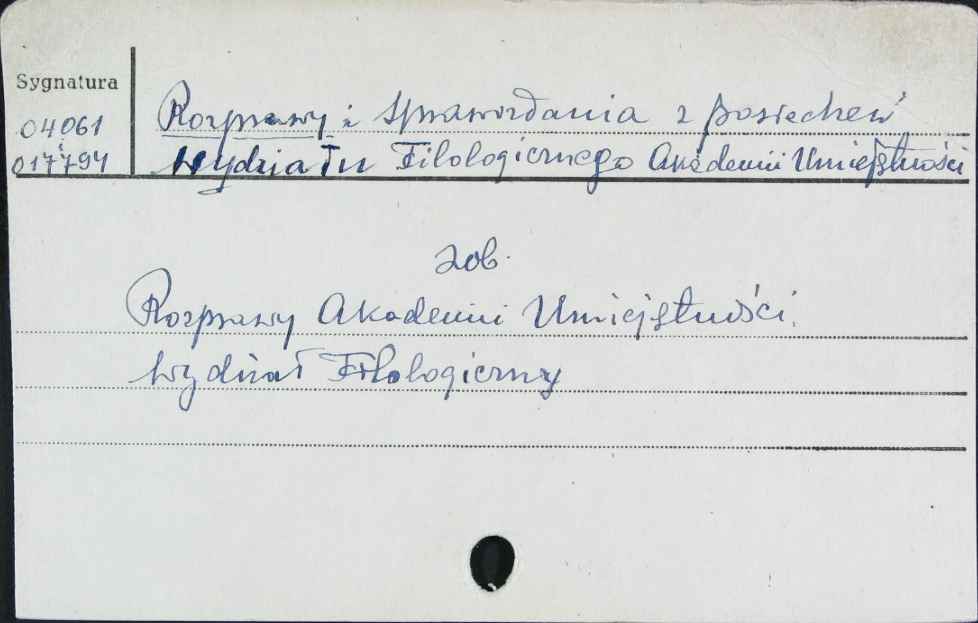 Sygnatura
04061
i
017794
Rozprawy i Sprawozdania z posiedzeń
Wydziału Filologicznego Akademii Umiejętności
zob.
Rozprawy Akademii Umiejętności.
Wydział Filologiczny